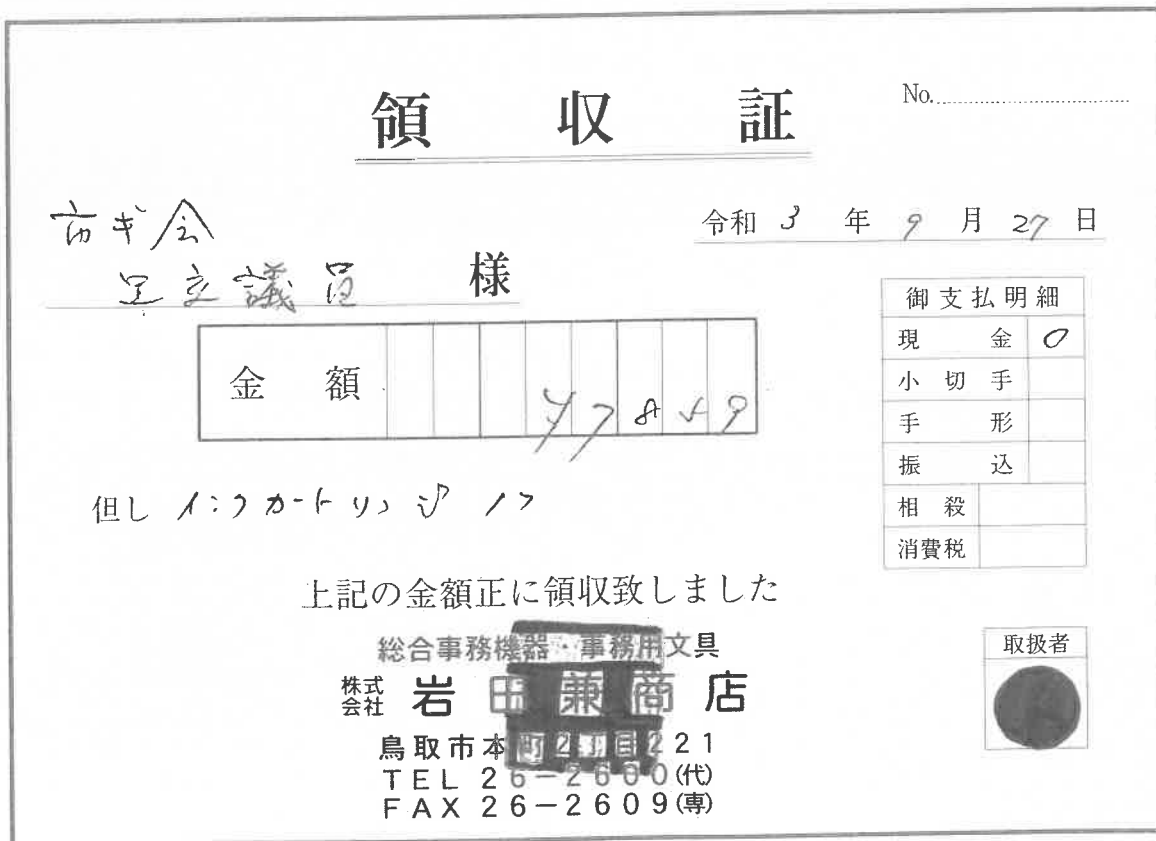 領収証
No.
市ギ会
足立議員 様
令和 3 年 9 月 27 日
金額 ¥7849
御支払明細
現金 〇
小切手
手形
振込
相殺
消費税
但し インクカートリッジ
上記の金額正に領収致しました
総合事務機器・事務用文具
株式会社 岩田兼商店
鳥取市本町2丁目221
TEL 26-2600(代)
FAX 26-2609(専)
取扱者